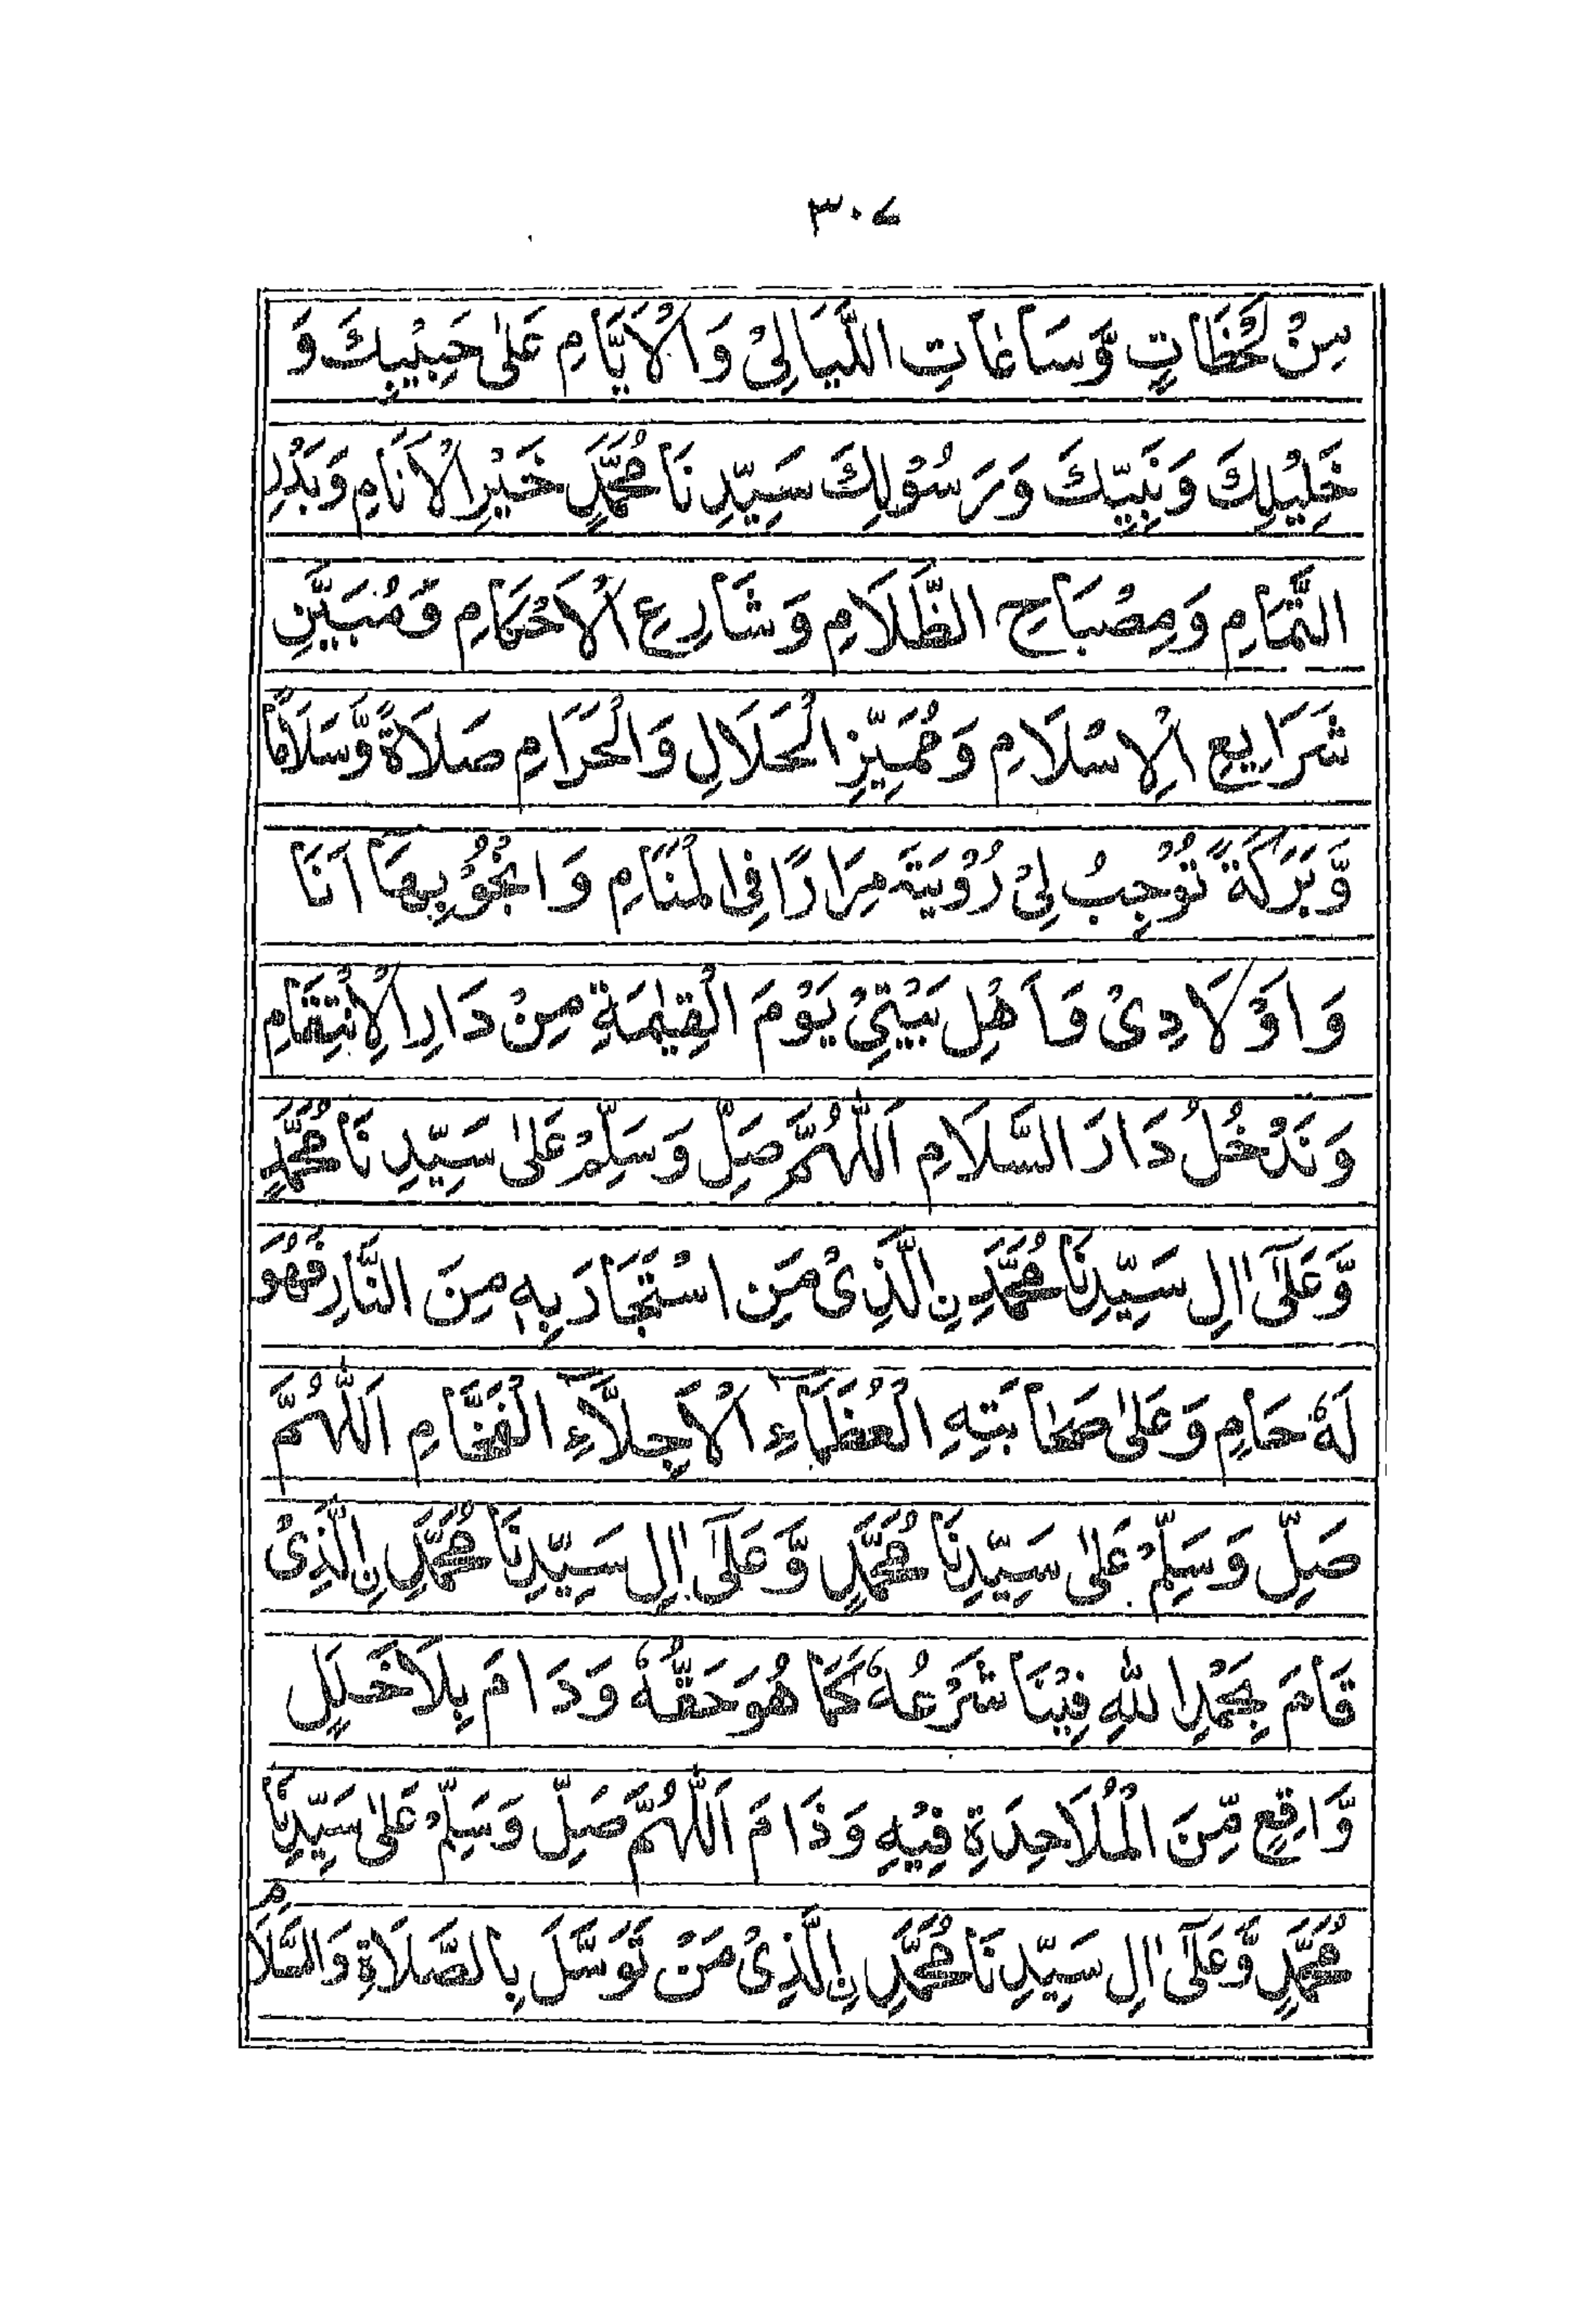 ٣٠٧
مِنْ لَحْظَاتٍ وَّسَاعَاتِ اللَّيَالِیْ وَالْاَيَّامِ عَلٰى حَبِيْبِكَ وَ
خَلِيْلِكَ وَنَبِيِّكَ وَرَسُوْلِكَ سَيِّدِنَا مُحَمَّدٍ خَيْرِ الْاَنَامِ وَبَدْرِ
التَّمَامِ وَمِصْبَاحِ الظَّلَامِ وَشَارِعِ الْاَحْكَامِ وَمُبَيِّنِ
شَرَايِعِ الْاِسْلَامِ وَمُمَيِّزِ الْحَلَالِ وَالْحَرَامِ صَلَاةً وَّسَلَامًا
وَّبَرَكَةً تُوْجِبُ لِیْ رُؤْيَتَهٗ مِرَارًا فِی الْمَنَامِ وَانْجُوْ بِهَآ اَنَا
وَاَوْلَادِیْ وَاَهْلِ بَيْتِیْ يَوْمَ الْقِيٰمَةِ مِنْ دَارِ الْاِنْتِقَامِ
وَنَدْخُلُ دَارَ السَّلَامِ اَللّٰهُمَّ صَلِّ وَسَلِّمْ عَلٰى سَيِّدِنَا مُحَمَّدٍ
وَّعَلٰٓى اٰلِ سَيِّدِنَا مُحَمَّدِ نِ الَّذِیْ مَنِ اسْتَجَارَ بِهٖ مِنَ النَّارِ فَهُوَ
لَهٗ حَامٍ وَعَلٰى صَحَابَتِهِ الْعُظَمَآءِ الْاَجِلَّآءِ الْفَخَّامِ اَللّٰهُمَّ
صَلِّ وَسَلِّمْ عَلٰى سَيِّدِنَا مُحَمَّدٍ وَّعَلٰٓى اٰلِ سَيِّدِنَا مُحَمَّدِ نِ الَّذِیْ
قَامَ بِحَمْدِ اللّٰهِ فِيْنَا شَرْعُهٗ كَمَا هُوَ حَقُّهٗ وَدَامَ بِلَا خَلَلٍ
وَّاقِعٍ مِّنَ الْمُلَاحِدَةِ فِيْهِ وَذَامَ اَللّٰهُمَّ صَلِّ وَسَلِّمْ عَلٰى سَيِّدِنَا
مُحَمَّدٍ وَّعَلٰٓى اٰلِ سَيِّدِنَا مُحَمَّدِ نِ الَّذِیْ مَنْ تَوَسَّلَ بِالصَّلَاةِ وَالسَّلَامِ